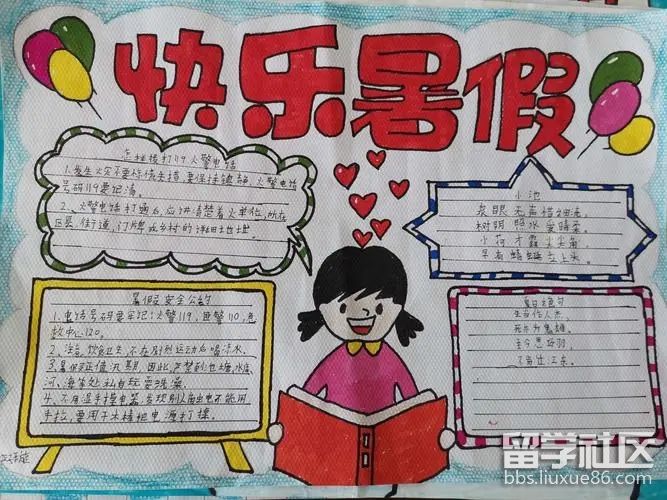 快乐暑假
怎样拨打119火警电话
1、发生火灾不要惊慌失措,要保持镇静,火警电话
号码119要记清。
2、火警电话打通后,应讲清楚着火单位,所在
区县、街道、门牌或乡村的详细地址。
小池
泉眼无声惜细流,
树阴照水爱晴柔。
小荷才露尖尖角,
早有蜻蜓立上头。
暑假安全公约
1、电话号码要牢记:火警119,匪警110,急
救中心120。
2、注意饮食卫生,不在剧烈运动后喝冷水。
3、暑假正值汛期,因此,严禁到池塘,水库,
河、海等处私自玩耍洗澡。
4、不用湿手摸电器,发现别人触电不能用
手拉,要用干木棒把电源打掉。
夏日绝句
生当作人杰,
死亦为鬼雄。
至今思项羽,
不肯过江东。
留学社区
bbs.liuxue86.com